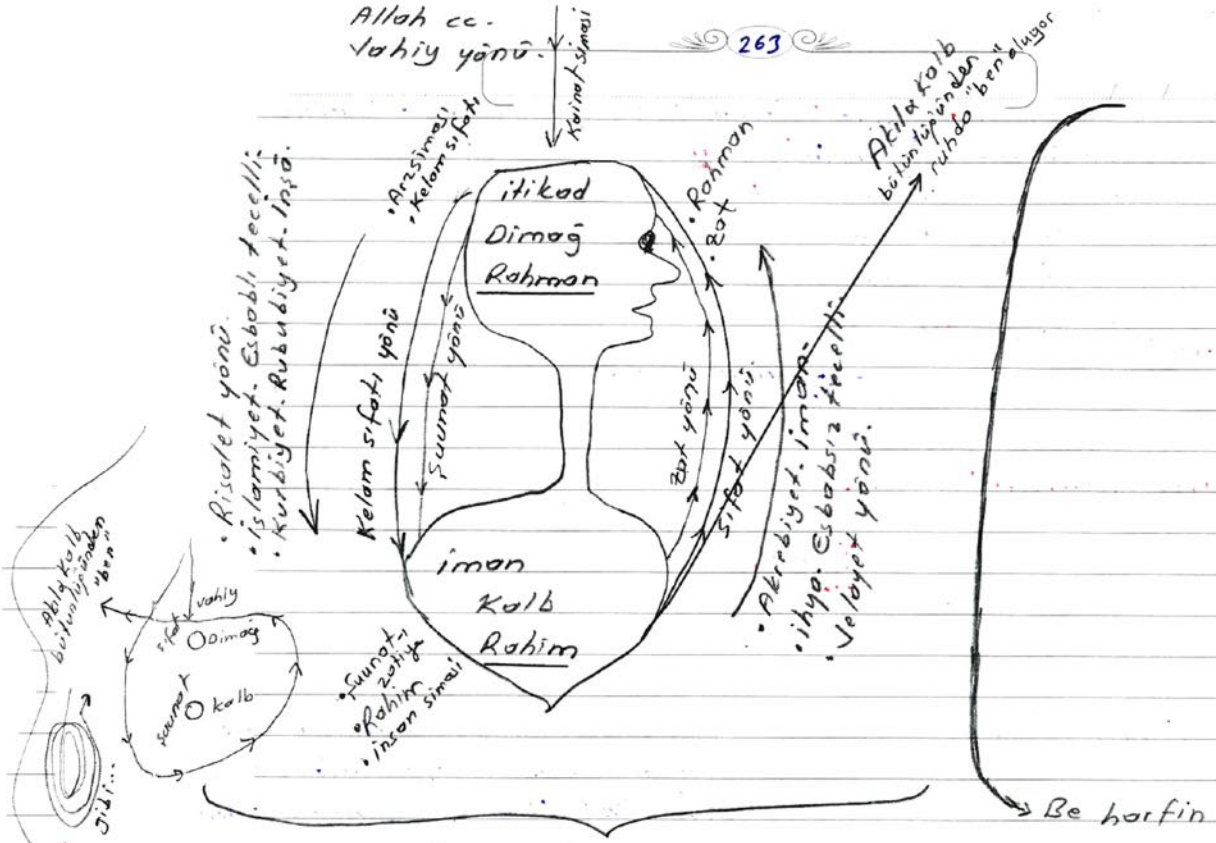 Allah cc.
Vahiy yönü.
Kainat siması
263
Akılla kalb
bütünlüğünden
ruhda "ben" oluyor
• Arz siması
• Kelam sıfatı
itikad
Dimağ
Rahman
• Rahman
• Zat
• Risalet yönü.
• İslamiyet. Esbablı tecelli.
• Kurbiyet. Rububiyet. İnşa.
Kelam sıfatı yönü
Şuunat yönü
Zat yönü
Sıfat yönü.
• Akrebiyet. iman-
• ihya. Esbabsız tecelli.
• Velayet yönü.
iman
Kalb
Rahim
• Şuunat-ı
zatiye
• Rahim
• insan siması
Akılla kalb
bütünlüğünden
"ben"
vahiy
sıfat
Dimağ
şuunat
kalb
gibi...
Be harfin